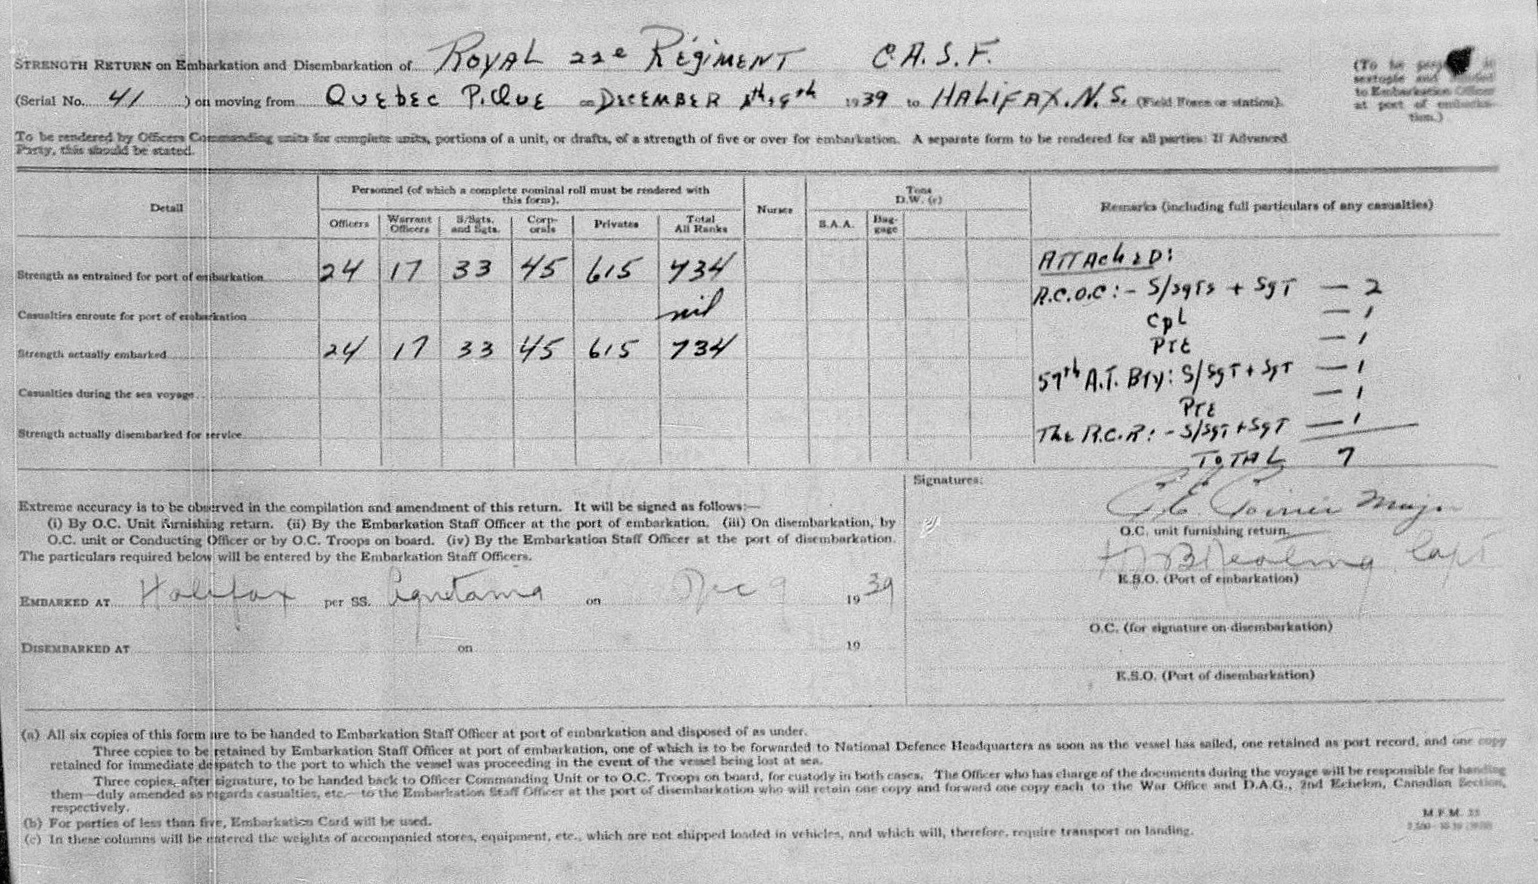 STRENGTH RETURN on Embarkation and Disembarkation of ROYAL 22e RÉGIMENT C.A.S.F.
(To be in sextuple and handed to Embarkation Officer at port of embarkation.)
(Serial No. 41 ) on moving from QUEBEC P.QUE on DECEMBER 8th, 9th 1939 to HALIFAX. N.S. (Field Force or station).
To be rendered by Officers Commanding units for complete units, portions of a unit, or drafts, of a strength of five or over for embarkation. A separate form to be rendered for all parties: If Advanced
Party, this should be stated.
Detail
Personnel (of which a complete nominal roll must be rendered with this form).
Nurses
Tons D.W. (c)
Remarks (including full particulars of any casualties)
Officers Warrant Officers S/Sgts. and Sgts. Corporals Privates Total All Ranks S.A.A. Baggage
Strength as entrained for port of embarkation 24 17 33 45 615 734
Casualties enroute for port of embarkation nil
Strength actually embarked 24 17 33 45 615 734
Casualties during the sea voyage
Strength actually disembarked for service
ATTACHED:
R.C.O.C:- S/SgTs + SgT — 2
CpL — 1
PTE — 1
57th A.T. Bty: S/SgT + SgT — 1
PTE — 1
THE R.C.R:- S/SgT + SgT — 1
TOTAL 7
Extreme accuracy is to be observed in the compilation and amendment of this return. It will be signed as follows:—
(i) By O.C. Unit furnishing return. (ii) By the Embarkation Staff Officer at the port of embarkation. (iii) On disembarkation, by
O.C. unit or Conducting Officer or by O.C. Troops on board. (iv) By the Embarkation Staff Officer at the port of disembarkation.
The particulars required below will be entered by the Embarkation Staff Officers.
EMBARKED AT Halifax per SS. Aquitania on Dec 9 1939
DISEMBARKED AT on 19
Signatures:
Poirier Major
O.C. unit furnishing return.
Keating Capt
E.S.O. (Port of embarkation)
O.C. (for signature on disembarkation)
E.S.O. (Port of disembarkation)
(a) All six copies of this form are to be handed to Embarkation Staff Officer at port of embarkation and disposed of as under.
Three copies to be retained by Embarkation Staff Officer at port of embarkation, one of which is to be forwarded to National Defence Headquarters as soon as the vessel has sailed, one retained as port record, and one copy
retained for immediate despatch to the port to which the vessel was proceeding in the event of the vessel being lost at sea.
Three copies, after signature, to be handed back to Officer Commanding Unit or to O.C. Troops on board, for custody in both cases. The Officer who has charge of the documents during the voyage will be responsible for handing
them—duly amended as regards casualties, etc.—to the Embarkation Staff Officer at the port of disembarkation who will retain one copy and forward one copy each to the War Office and D.A.G., 2nd Echelon, Canadian Section,
respectively.
(b) For parties of less than five, Embarkation Card will be used.
(c) In these columns will be entered the weights of accompanied stores, equipment, etc., which are not shipped loaded in vehicles, and which will, therefore, require transport on landing.
M.F.M.